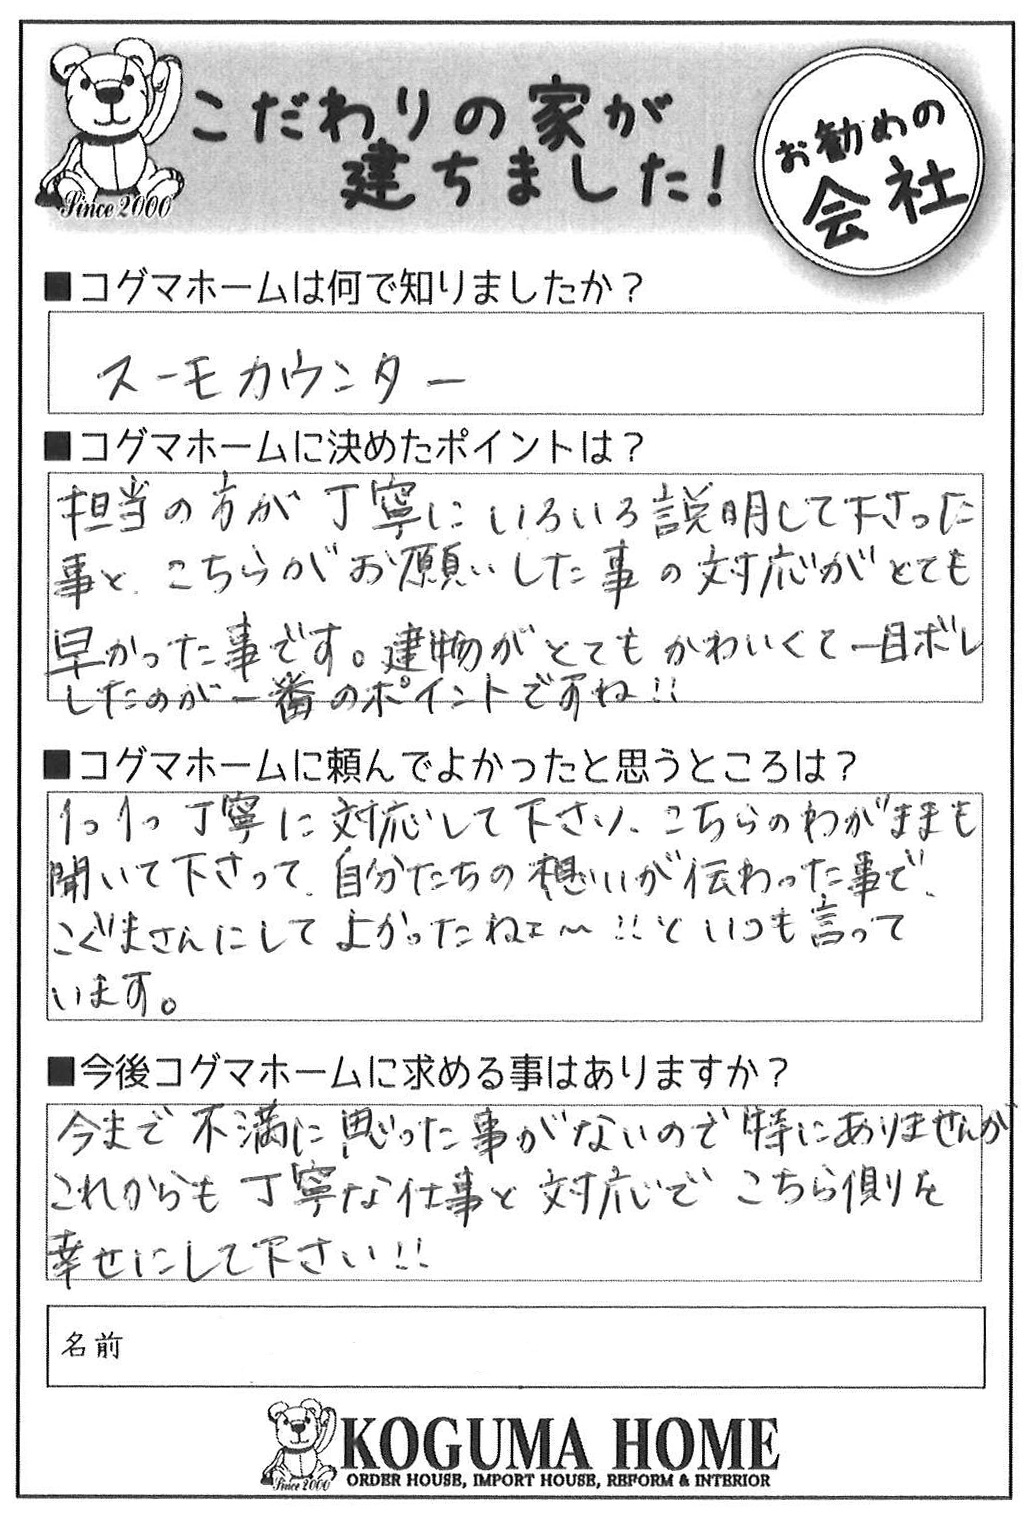 こだわりの家が
建ちました！
お勧めの
会社
Since 2000
■コグマホームは何で知りましたか？
スーモカウンター
■コグマホームに決めたポイントは？
担当の方が丁寧にいろいろ説明して下さった
事と、こちらがお願いした事の対応がとても
早かった事です。建物がとてもかわいくて一目ボレ
したのが一番のポイントですね!!
■コグマホームに頼んでよかったと思うところは？
1つ1つ丁寧に対応して下さり、こちらのわがままも
聞いて下さって、自分たちの想いが伝わった事で、
こぐまさんにしてよかったねェ〜!!といつも言って
います。
■今後コグマホームに求める事はありますか？
今まで不満に思った事がないので特にありませんが
これからも丁寧な仕事と対応でこちら側を
幸せにして下さい!!
名前
KOGUMA HOME
ORDER HOUSE, IMPORT HOUSE, REFORM & INTERIOR
Since 2000